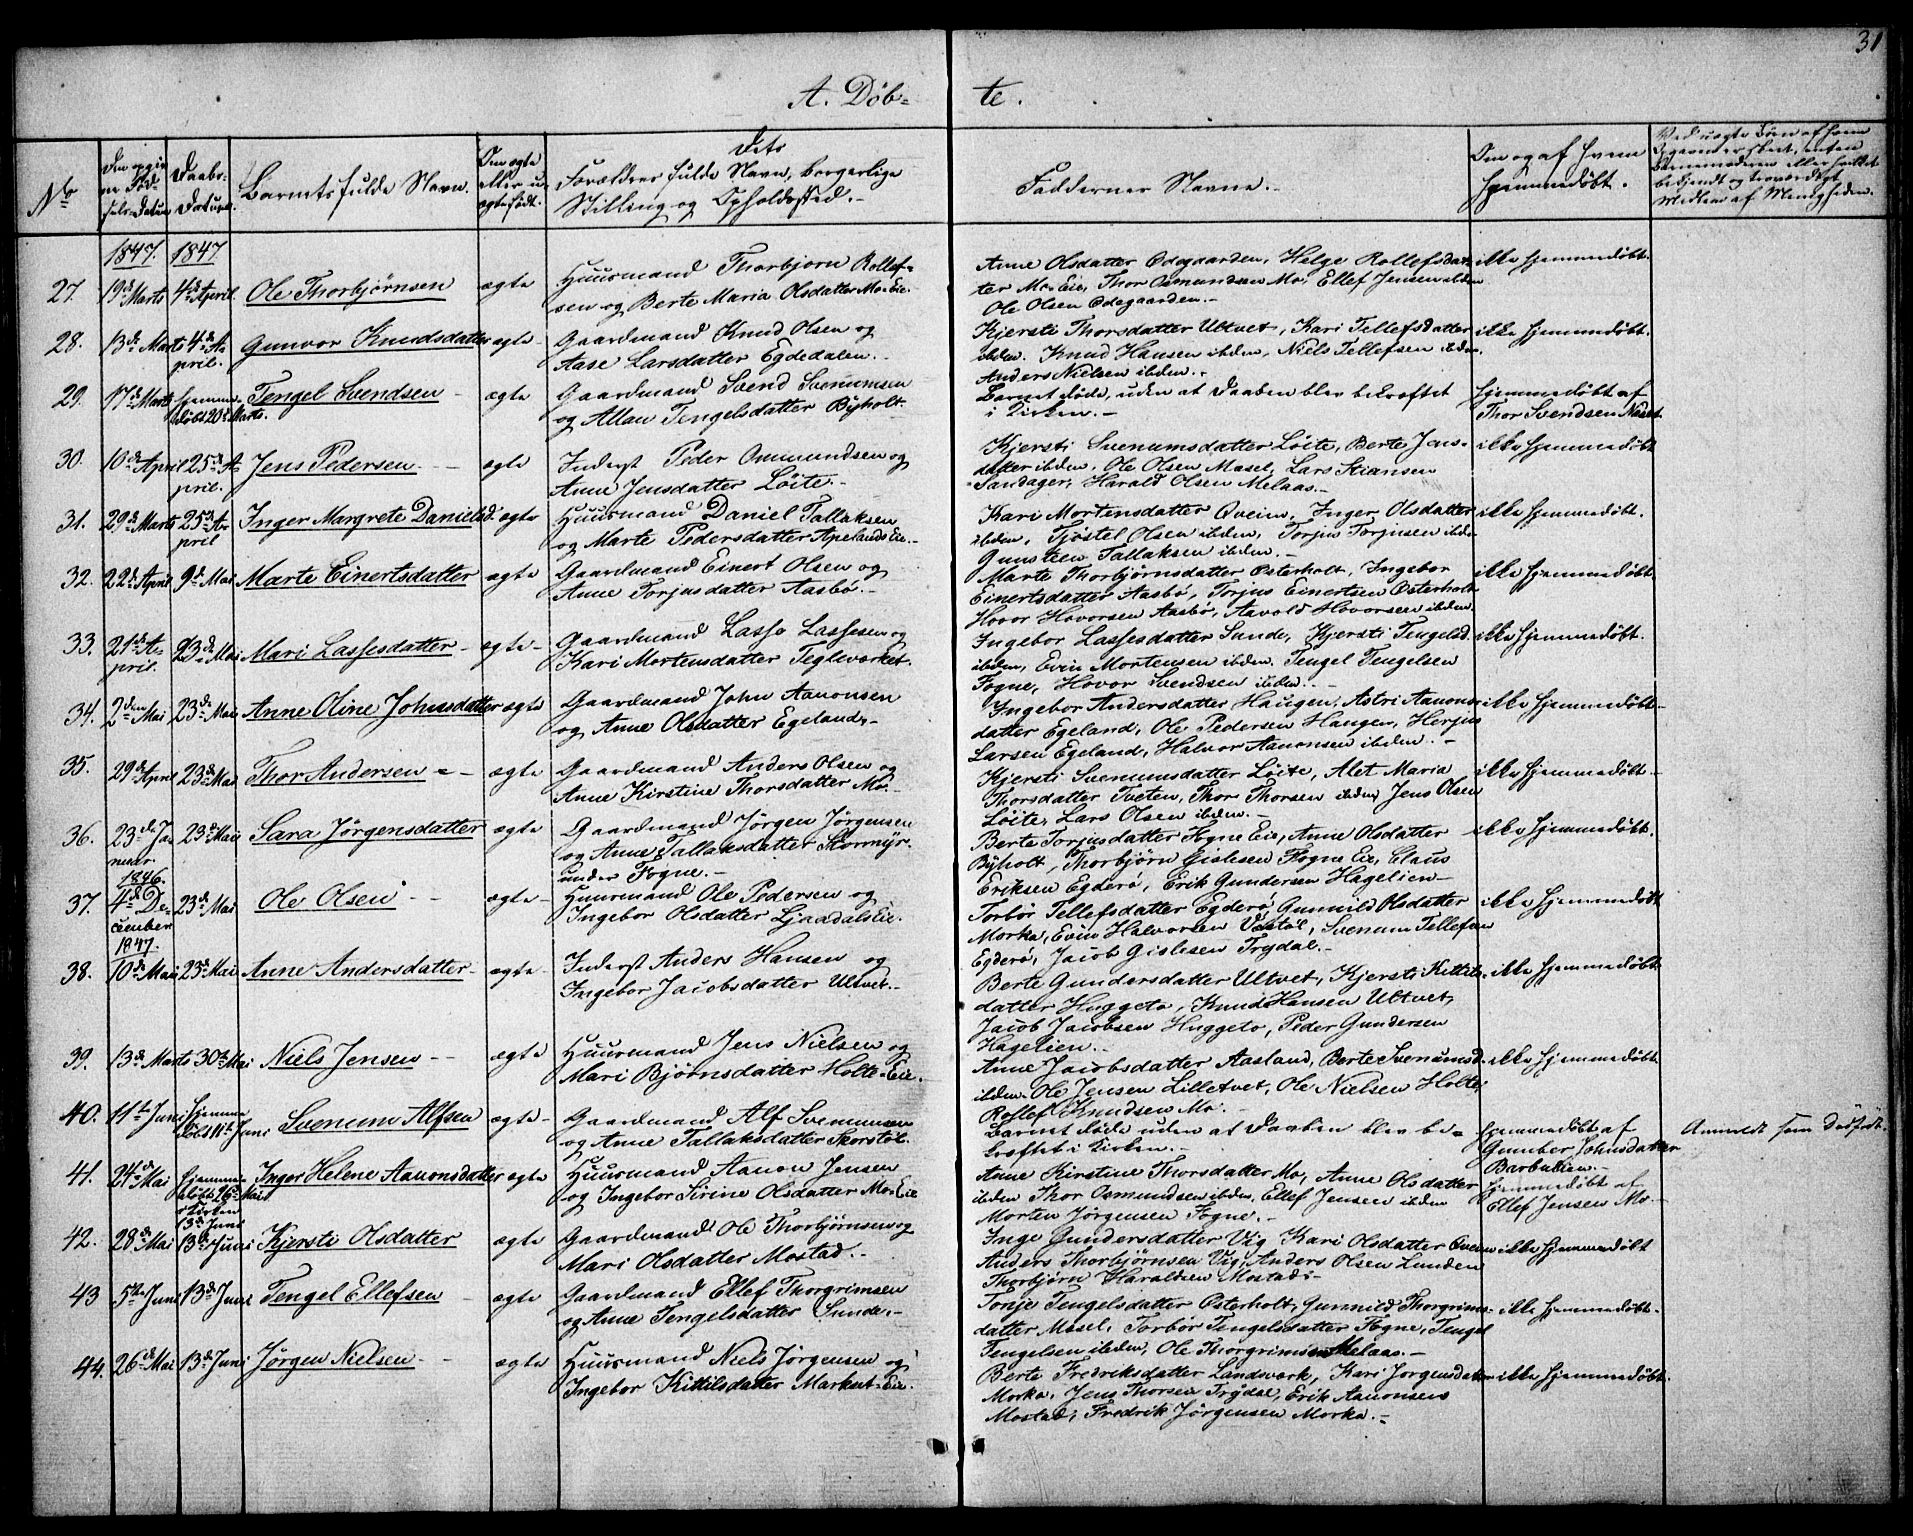 31
A. Døb= te.
No
Den opgivne Fødsels-Datum
Daabs-Datum.
Barnets fulde Navn.
Om ægte eller uægte født.
Dets
Forældres fulde Navn, borgerlige
Stilling og Opholdssted.-
Faddernes Navne.-
Om og af hvem
hjemmedøbt.
1847. 1847
27. 19de Marts 4de April. Ole Thorbjørnsen ægte
Huusmand Thorbjørn Rollef=
sen og Berte Maria Olsdatter Mo-Eie.
Anne Olsdatter Ødegaarden, Helge Rollefsdat=
ter Mo-Eie, Thor Osmundsen Mo, Ellef Jensen ibden
Ole Olsen Ødegaarden.-
ikke hjemmedøbt.
28. 13de Marts 4de A=
pril. Gunvor Knudsdatter ægte
Gaardmand Knud Olsen og
Aase Larsdatter Egdedalen.-
Kjersti Thorsdatter Ultvet, Kari Tellefsdatter
ibden. Knud Hansen ibden, Niels Tellefsen ibden.
Anders Nielsen ibden.-
ikke hjemmedøbt.
29. 17de Marts hjemme
døbt 20de Marts. Tengel Svendsen - ægte
Gaardmand Svend Svenumsen
og Allau Tengelsdatter Byholt.
Barnet døde, uden at Daaben blev bekræftet
i Kirken.-
hjemmedøbt af
Thor Svendsen Næset.
30. 10de April 25de A=
pril. Jens Pedersen. - ægte
Inderst Peder Ommundsen og
Anne Jensdatter Løite.-
Kjersti Svenumsdatter Løite, Berte Jens=
datter ibden, Ole Olsen Mæsel, Lars Stiansen
Sandager, Harald Olsen Melaas.-
ikke hjemmedøbt
31. 29de Marts 25de A=
pril Inger Margrete Danielsd. ægte
Huusmand Daniel Tallaksen
og Marte Pedersdatter Apelands Eie.-
Kari Mortensdatter Qveim, Inger Olsdatter
ibden, Tjøstel Olsen ibden, Torjus Torjusen ibden
Gunsteen Tallaksen ibden.-
ikke hjemmedøbt.
32. 22de April 9de Mai Marte Einertsdatter ægte
Gaardmand Einert Olsen og
Anne Torjusdatter Aasbø.-
Marte Thorbjørnsdatter Østerholt, Ingebor
Einertsdatter Aasbø, Torjus Einertsen Østerholt
Hovor Hovorsen Aasbø, Aavold Hovorsen ibden
ikke hjemmedøbt.
33. 21de A=
pril. 23de Mai Mari Lassesdatter - ægte-
Gaardmand Lasse Lassesen og
Kari Mortensdatter Teglverket.
Ingebor Lassesdatter Sunde, Kjersti Tengelsd.
ibden, Evin Mortensen ibden. Tengel Tengelsen
Fogne, Hovor Svendsen ibden.-
ikke hjemmedøbt.
34. 2den Mai 23de Mai Anne Oline Johnsdatter ægte
Gaardmand John Aanonsen
og Anne Olsdatter Egeland,-
Ingebor Andersdatter Haugen, Astri Aanons=
datter Egeland, Ole Pedersen Haugen, Herjus
Larsen Egeland, Halvor Aanonsen ibden.-
ikke hjemmedøbt-
35. 29de April 23de Mai Thor Andersen - - ægte
Gaardmand Anders Olsen og
Anne Kirstine Thorsdatter Mo.-
Kjersti Svenumsdatter Løite, Alet Maria
Thorsdatter Tveten, Thor Thorsen ibden, Jens Olsen
Løite, Lars Olsen ibden.-
ikke hjemmedøbt.-
36. 23de Ja=
nuar. 23de Mai Sara Jørgensdatter ægte
Gaardmand Jørgen Jørgensen
og Anne Tallaksdatter Stormyr.
under Fogne.-
Berte Torjusdatter Fogne Eie, Anne Olsdatter
Byholt, Thorbjørn Gislesen Fogne Eie, Claus
Eriksen Egderø, Erik Gundersen Hagelien-
ikke hjemmedøbt.
1846.
37. 4de De=
cember 23de Mai Ole Olsen - - ægte
Huusmand Ole Pedersen og
Ingebor Olsdatter Ljaadals Eie.
Torbør Tellefsdatter Egderø, Gunnild Olsdatter
Morka, Evin Halvorsen Vastøl, Svenum Tellefsen
Egderø, Jacob Gislesen Trydal.-
ikke hjemmedøbt
1847.
38. 10de Mai 23de Mai Anne Andersdatter ægte-
Inderst Anders Hansen og
Ingebor Jacobsdatter Ultvet.-
Berte Gundersdatter Ultvet, Kjersti Kittils-
datter Huggeto, Knud Hansen Ultvet,
Jacob Jacobsen Huggeto, Peder Gundersen
Hagelien.-
ikke hjemmedøbt
39. 13de Marts 30te Mai Niels Jensen - - ægte
Huusmand Jens Nielsen og
Mari Bjørnsdatter Holte-Eie.
Anne Jacobsdatter Aasland, Berte Svenumsd.
ibden. Ole Jensen Lilletvet, Ole Nielsen Holte,
Rollef Knudsen Mo.-
ikke hjemmedøbt.
40. 11te Juni hjemme
døbt 11te Juni Svenum Alfsen ægte-
Gaardmand Alf Svenumsen
og Anne Tallaksdatter Skorstøl.
Barnet døde uden at Daaben blev be=
kræftet i Kirken.-
hjemmedøbt af
Gunber Johnsdatter
Barbulien.-
Anmeldt som dødfødt.
41. 24de Mai hjemme=
døbt 26de Mai
i Kirken
13de Juni Inger Helene Aanonsdatter ægte
Huusmand Aanon Jensen
og Ingebor Sirine Olsdatter Mo-Eie
Anne Kirstine Thorsdatter Mo, Anne Olsdatter
ibden Thor Osmundsen ibden, Ellef Jensen ibden
Morten Jørgensen Fogne.-
hjemmedøbt af
Ellef Jensen Mo.-
42. 28de Mai 13de Juni Kjersti Olsdatter ægte
Gaardmand Ole Thorbjørnsen og
Mari Olsdatter Mostad.-
Inge Gundersdatter Vig, Kari Olsdatter Qveim
Anders Thorbjørnsen Vig, Anders Olsen Lunden
Thorbjørn Haraldsen Mostad.-
ikke hjemmedøbt
43 5te Juni 13de Juni Tengel Ellefsen - ægte
Gaardmand Ellef Thorgrimsen
og Anne Tengelsdatter Sunde.-
Tonje Tengelsdatter Østerholt, Gunnild Thorgrims=
datter Mæsel, Torbør Tengelsdatter Fogne, Tengel
Tengelsen ibden, Ole Thorgrimsen Melaas.-
ikke hjemmedøbt.
44. 26de Mai 13de Juni Jørgen Nielsen - - ægte
Huusmand Niels Jørgensen og
Ingebor Kittilsdatter Markset-Eie.
Berte Fredriksdatter Landsverk, Kari Jørgensdatter
Morka, Jens Thorsen Trydal, Erik Aanonsen
Mostad, Fredrik Jørgensen Morka.-
ikke hjemmedøbt.